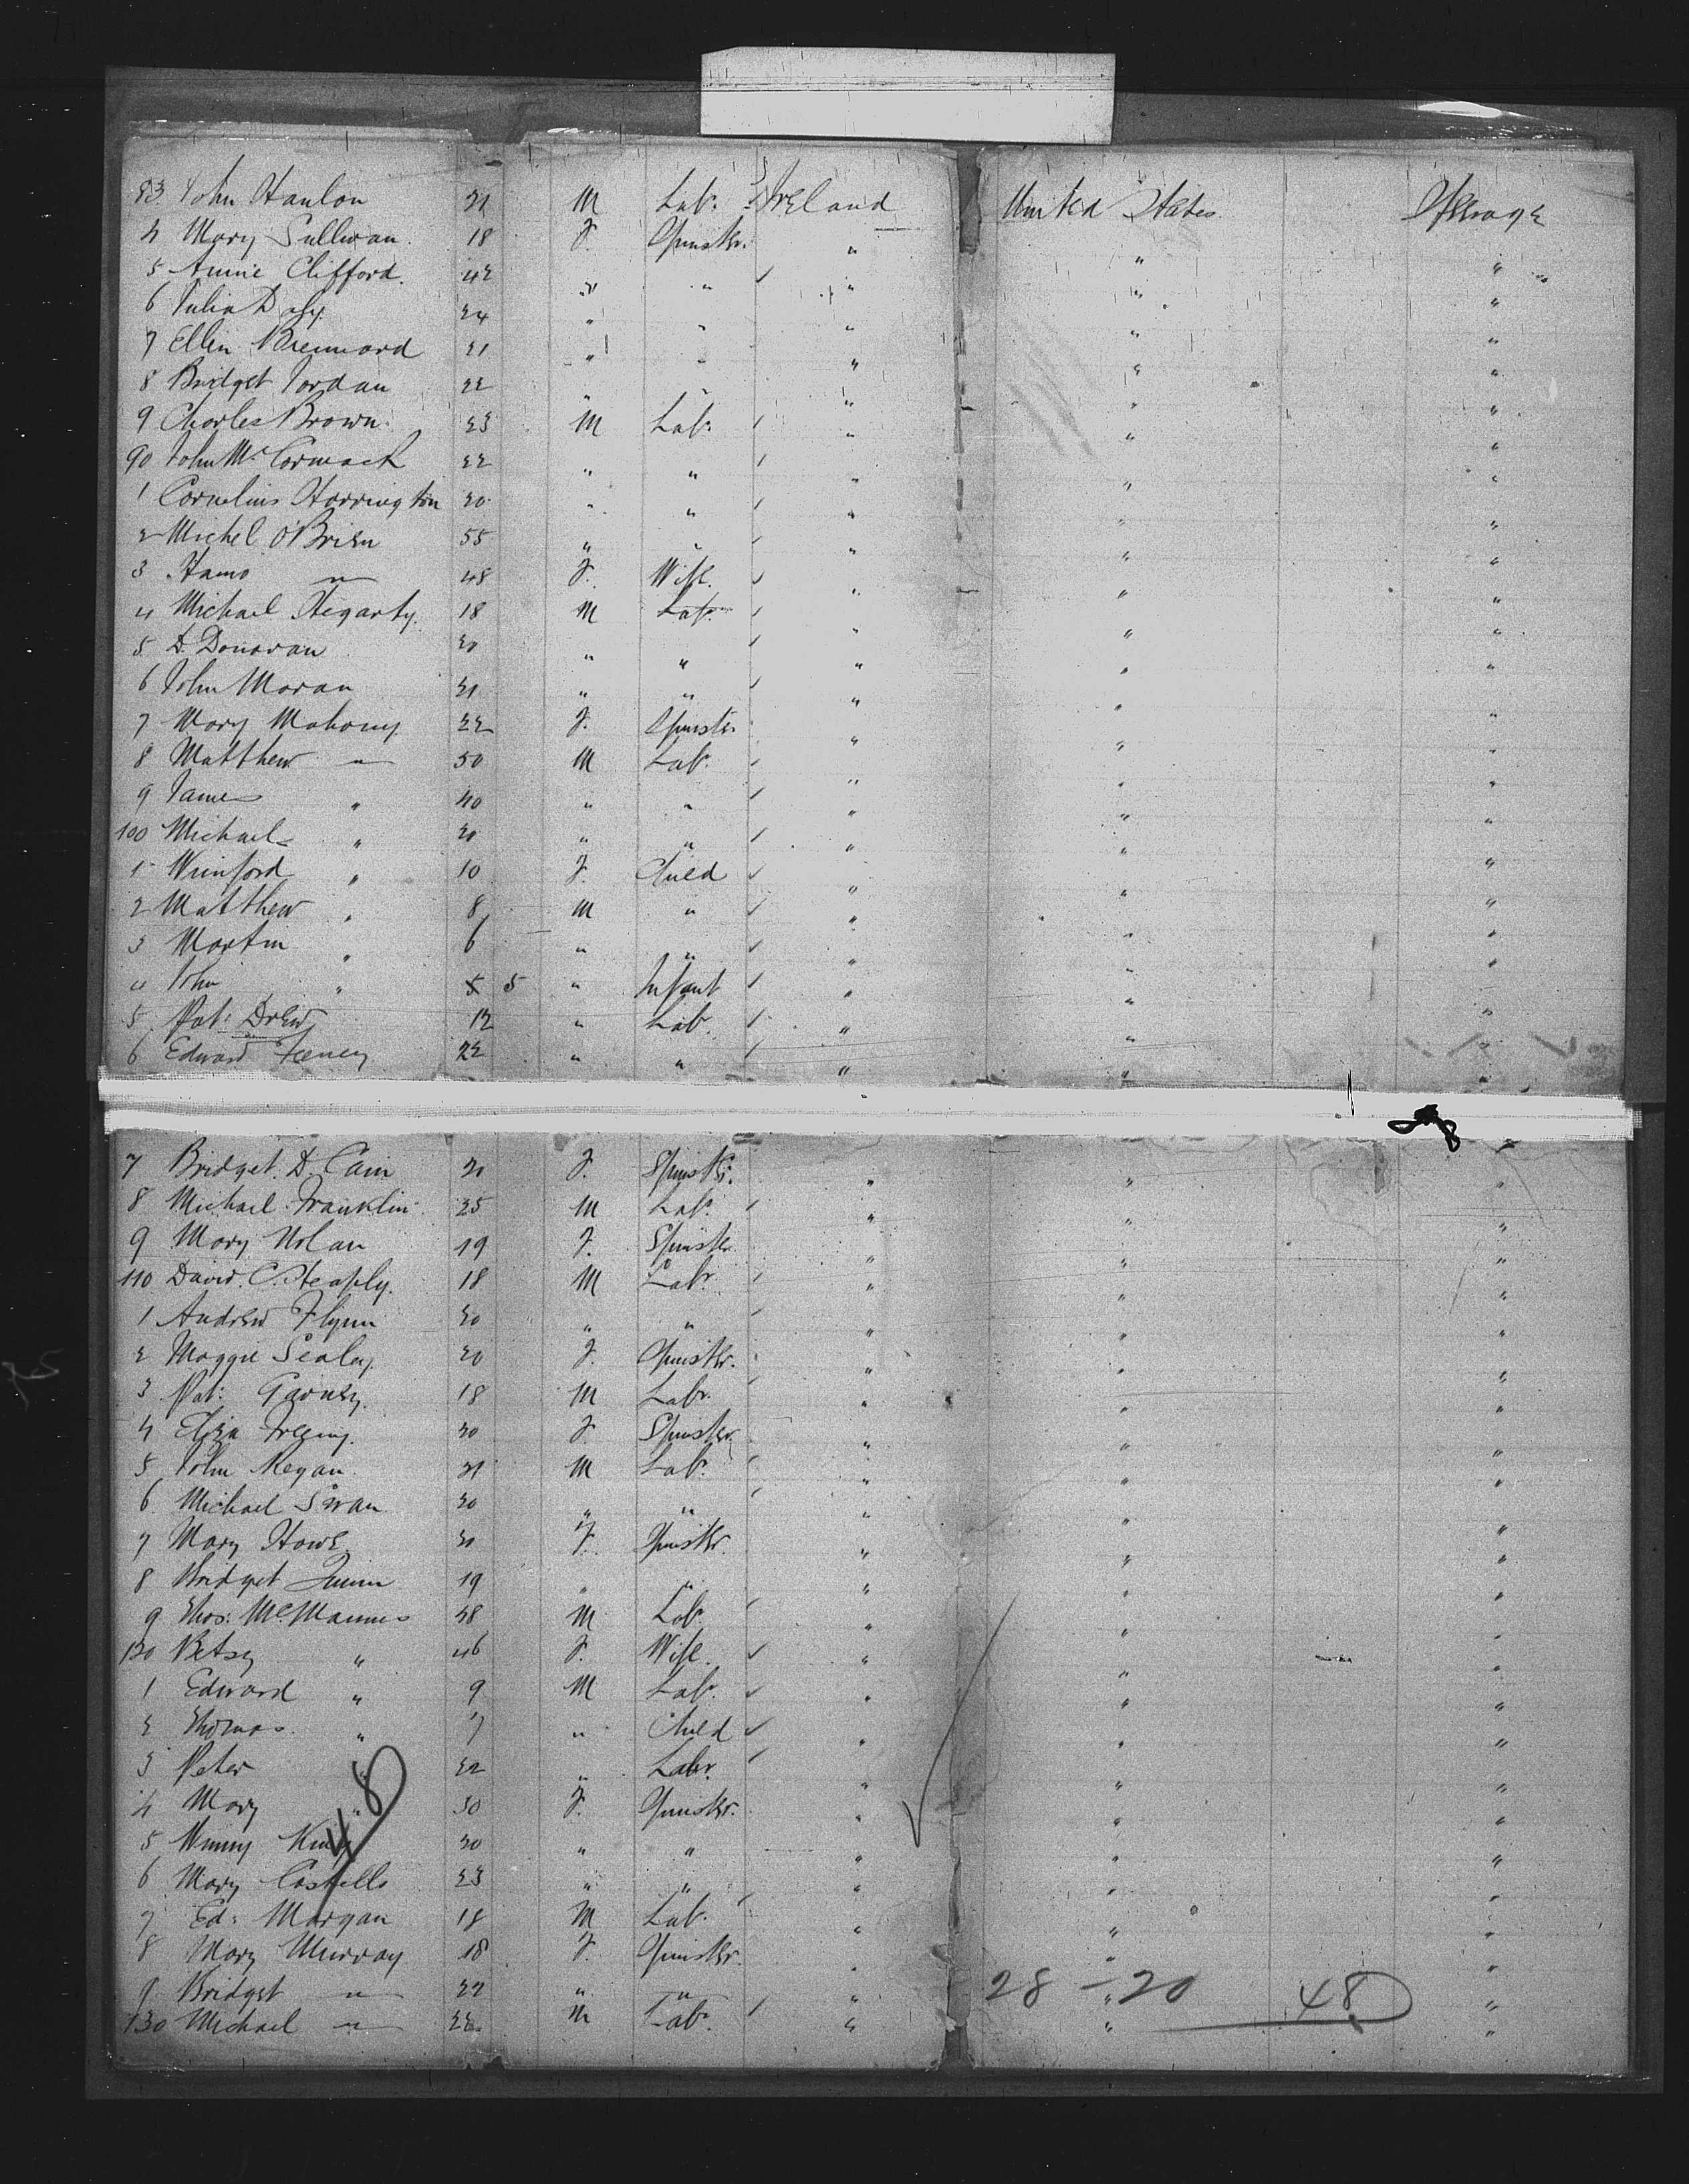 83 John Hanlon 21 M Labr Ireland United States Steerage
4 Mary Sullivan 18 F. Spinster " " "
5 Annie Clifford 42 " " " " "
6 Julia Daly 24 " " " " "
7 Ellen 21 " " " " "
8 Bridget Jordan 22 " " " " "
9 Charles Brown 23 M Labr " " "
90 John McCormack 22 " " " " "
1 Cornelius Harrington 20 " " " " "
2 Michel O'Brien 55 " " " " "
3 " 48 F. Wife " " "
4 Michael Hegarty 18 M Labr " " "
5 D. Donovan 20 " " " " "
6 John Moran 21 " " " " "
7 Mary Mahony 22 F. Spinster " " "
8 Matthew " 50 M Labr " " "
9 James " 40 " " " " "
100 Michael " 20 " " " " "
1 Winiford " 10 F. Child " " "
2 Matthew " 8 M " " " "
3 Martin " 6 " " " " "
4 John " 5 5 " Infant " " "
5 Pat: Drew 12 " Labr " " "
6 Edward Feeney 22 " " " " "
7 Bridget D. Cain 21 F. Spinster " " "
8 Michael Franklin 25 M Labr " " "
9 Mary Nolan 19 F. Spinster " " "
110 David C. 18 M Labr " " "
1 Andrew Flynn 20 " " " " "
2 Maggie Sealey 20 F. Spinster " " "
3 Pat: 18 M Labr " " "
4 Eliza 20 F. Spinster " " "
5 John Regan 21 M Labr " " "
6 Michael 20 " " " " "
7 Mary Howe F. Spinster " " "
8 Bridget Quinn 19 " " " " "
9 Thos: McMannus 48 M Labr " " "
120 Betsy " 46 F. Wife " " "
1 Edward " 9 M Labr " " "
2 Thomas " 7 " Child " " "
3 Peter " 22 " Labr " " "
4 Mary " 30 F. Spinster " " "
5 Winny 20 " " " " "
6 Mary Costello 23 " " " " "
7 Ed: Morgan 18 M Labr " " "
8 Mary Murray 18 F. Spinster " " "
9 Bridget " 22 " " " " "
130 Michael " 22 M Labr " " "
48
28 - 20 48